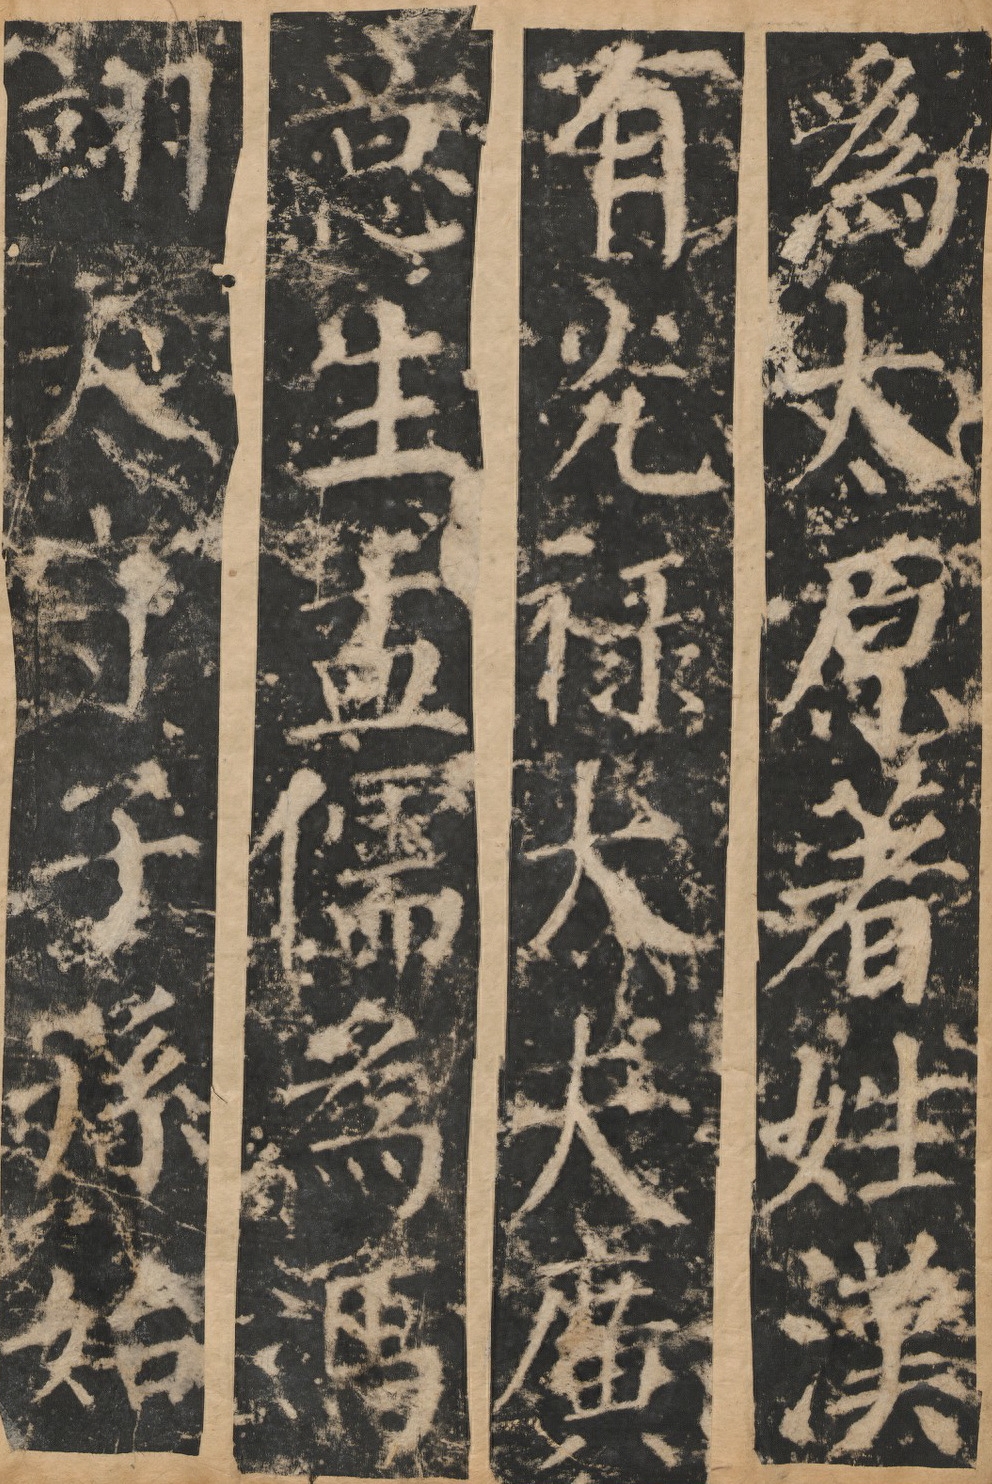 為太原著姓漢
有光祿大夫廣
意生孟儒為馮
翊太守子孫始